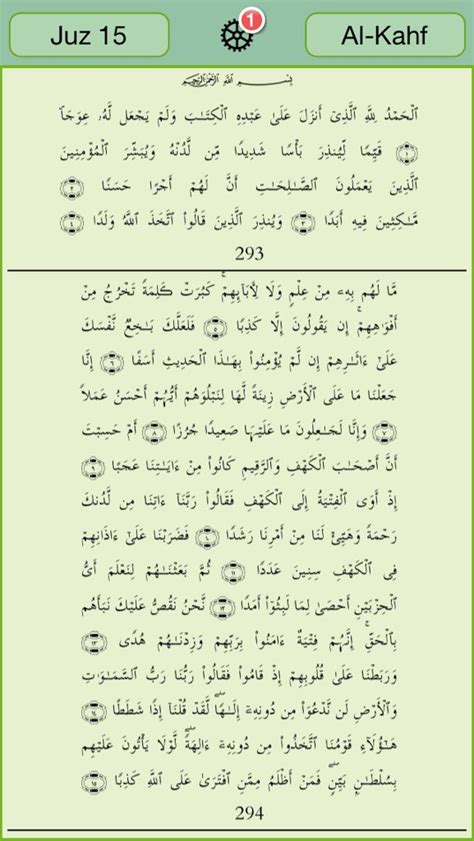 Juz 15
1
Al-Kahf
بِسْمِ اللَّهِ الرَّحْمَٰنِ الرَّحِيمِ
ٱلْحَمْدُ لِلَّهِ ٱلَّذِىٓ أَنزَلَ عَلَىٰ عَبْدِهِ ٱلْكِتَـٰبَ وَلَمْ يَجْعَل لَّهُۥ عِوَجَاۜ
﴿١﴾ قَيِّمًا لِّيُنذِرَ بَأْسًا شَدِيدًا مِّن لَّدُنْهُ وَيُبَشِّرَ ٱلْمُؤْمِنِينَ
ٱلَّذِينَ يَعْمَلُونَ ٱلصَّـٰلِحَـٰتِ أَنَّ لَهُمْ أَجْرًا حَسَنًا ﴿٢﴾
مَّـٰكِثِينَ فِيهِ أَبَدًا ﴿٣﴾ وَيُنذِرَ ٱلَّذِينَ قَالُوا۟ ٱتَّخَذَ ٱللَّهُ وَلَدًا ﴿٤﴾
293
مَّا لَهُم بِهِۦ مِنْ عِلْمٍ وَلَا لِـَٔابَآئِهِمْ ۚ كَبُرَتْ كَلِمَةً تَخْرُجُ مِنْ
أَفْوَٰهِهِمْ ۚ إِن يَقُولُونَ إِلَّا كَذِبًا ﴿٥﴾ فَلَعَلَّكَ بَـٰخِعٌ نَّفْسَكَ
عَلَىٰٓ ءَاثَـٰرِهِمْ إِن لَّمْ يُؤْمِنُوا۟ بِهَـٰذَا ٱلْحَدِيثِ أَسَفًا ﴿٦﴾ إِنَّا
جَعَلْنَا مَا عَلَى ٱلْأَرْضِ زِينَةً لَّهَا لِنَبْلُوَهُمْ أَيُّهُمْ أَحْسَنُ عَمَلًا
﴿٧﴾ وَإِنَّا لَجَـٰعِلُونَ مَا عَلَيْهَا صَعِيدًا جُرُزًا ﴿٨﴾ أَمْ حَسِبْتَ
أَنَّ أَصْحَـٰبَ ٱلْكَهْفِ وَٱلرَّقِيمِ كَانُوا۟ مِنْ ءَايَـٰتِنَا عَجَبًا ﴿٩﴾
إِذْ أَوَى ٱلْفِتْيَةُ إِلَى ٱلْكَهْفِ فَقَالُوا۟ رَبَّنَآ ءَاتِنَا مِن لَّدُنكَ
رَحْمَةً وَهَيِّئْ لَنَا مِنْ أَمْرِنَا رَشَدًا ﴿١٠﴾ فَضَرَبْنَا عَلَىٰٓ ءَاذَانِهِمْ
فِى ٱلْكَهْفِ سِنِينَ عَدَدًا ﴿١١﴾ ثُمَّ بَعَثْنَـٰهُمْ لِنَعْلَمَ أَىُّ
ٱلْحِزْبَيْنِ أَحْصَىٰ لِمَا لَبِثُوٓا۟ أَمَدًا ﴿١٢﴾ نَّحْنُ نَقُصُّ عَلَيْكَ نَبَأَهُم
بِٱلْحَقِّ ۚ إِنَّهُمْ فِتْيَةٌ ءَامَنُوا۟ بِرَبِّهِمْ وَزِدْنَـٰهُمْ هُدًى ﴿١٣﴾
وَرَبَطْنَا عَلَىٰ قُلُوبِهِمْ إِذْ قَامُوا۟ فَقَالُوا۟ رَبُّنَا رَبُّ ٱلسَّمَـٰوَٰتِ
وَٱلْأَرْضِ لَن نَّدْعُوَا۟ مِن دُونِهِۦٓ إِلَـٰهًا ۖ لَّقَدْ قُلْنَآ إِذًا شَطَطًا ﴿١٤﴾
هَـٰٓؤُلَآءِ قَوْمُنَا ٱتَّخَذُوا۟ مِن دُونِهِۦٓ ءَالِهَةً ۖ لَّوْلَا يَأْتُونَ عَلَيْهِم
بِسُلْطَـٰنٍۭ بَيِّنٍ ۖ فَمَنْ أَظْلَمُ مِمَّنِ ٱفْتَرَىٰ عَلَى ٱللَّهِ كَذِبًا ﴿١٥﴾
294